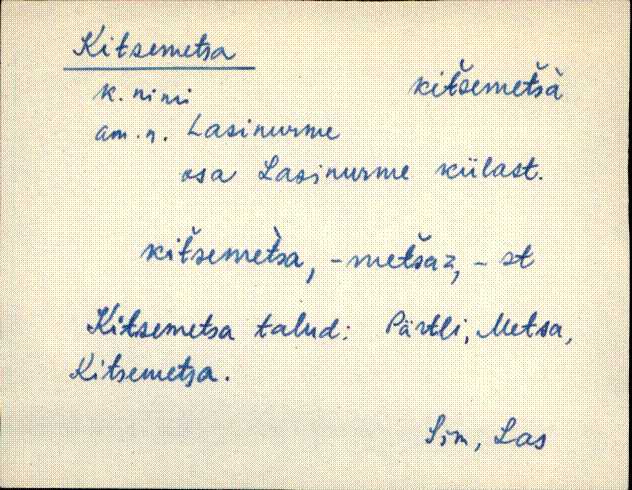 Kitsemetsa
k. nimi kitšemetšà
am. n. Lasinurme
osa Lasinurme külast.
kitšemet̀sa, -metšaz, -st
Kitsemetsa talud: Pärtli, Metsa,
Kitsemetsa.
Sim, Las